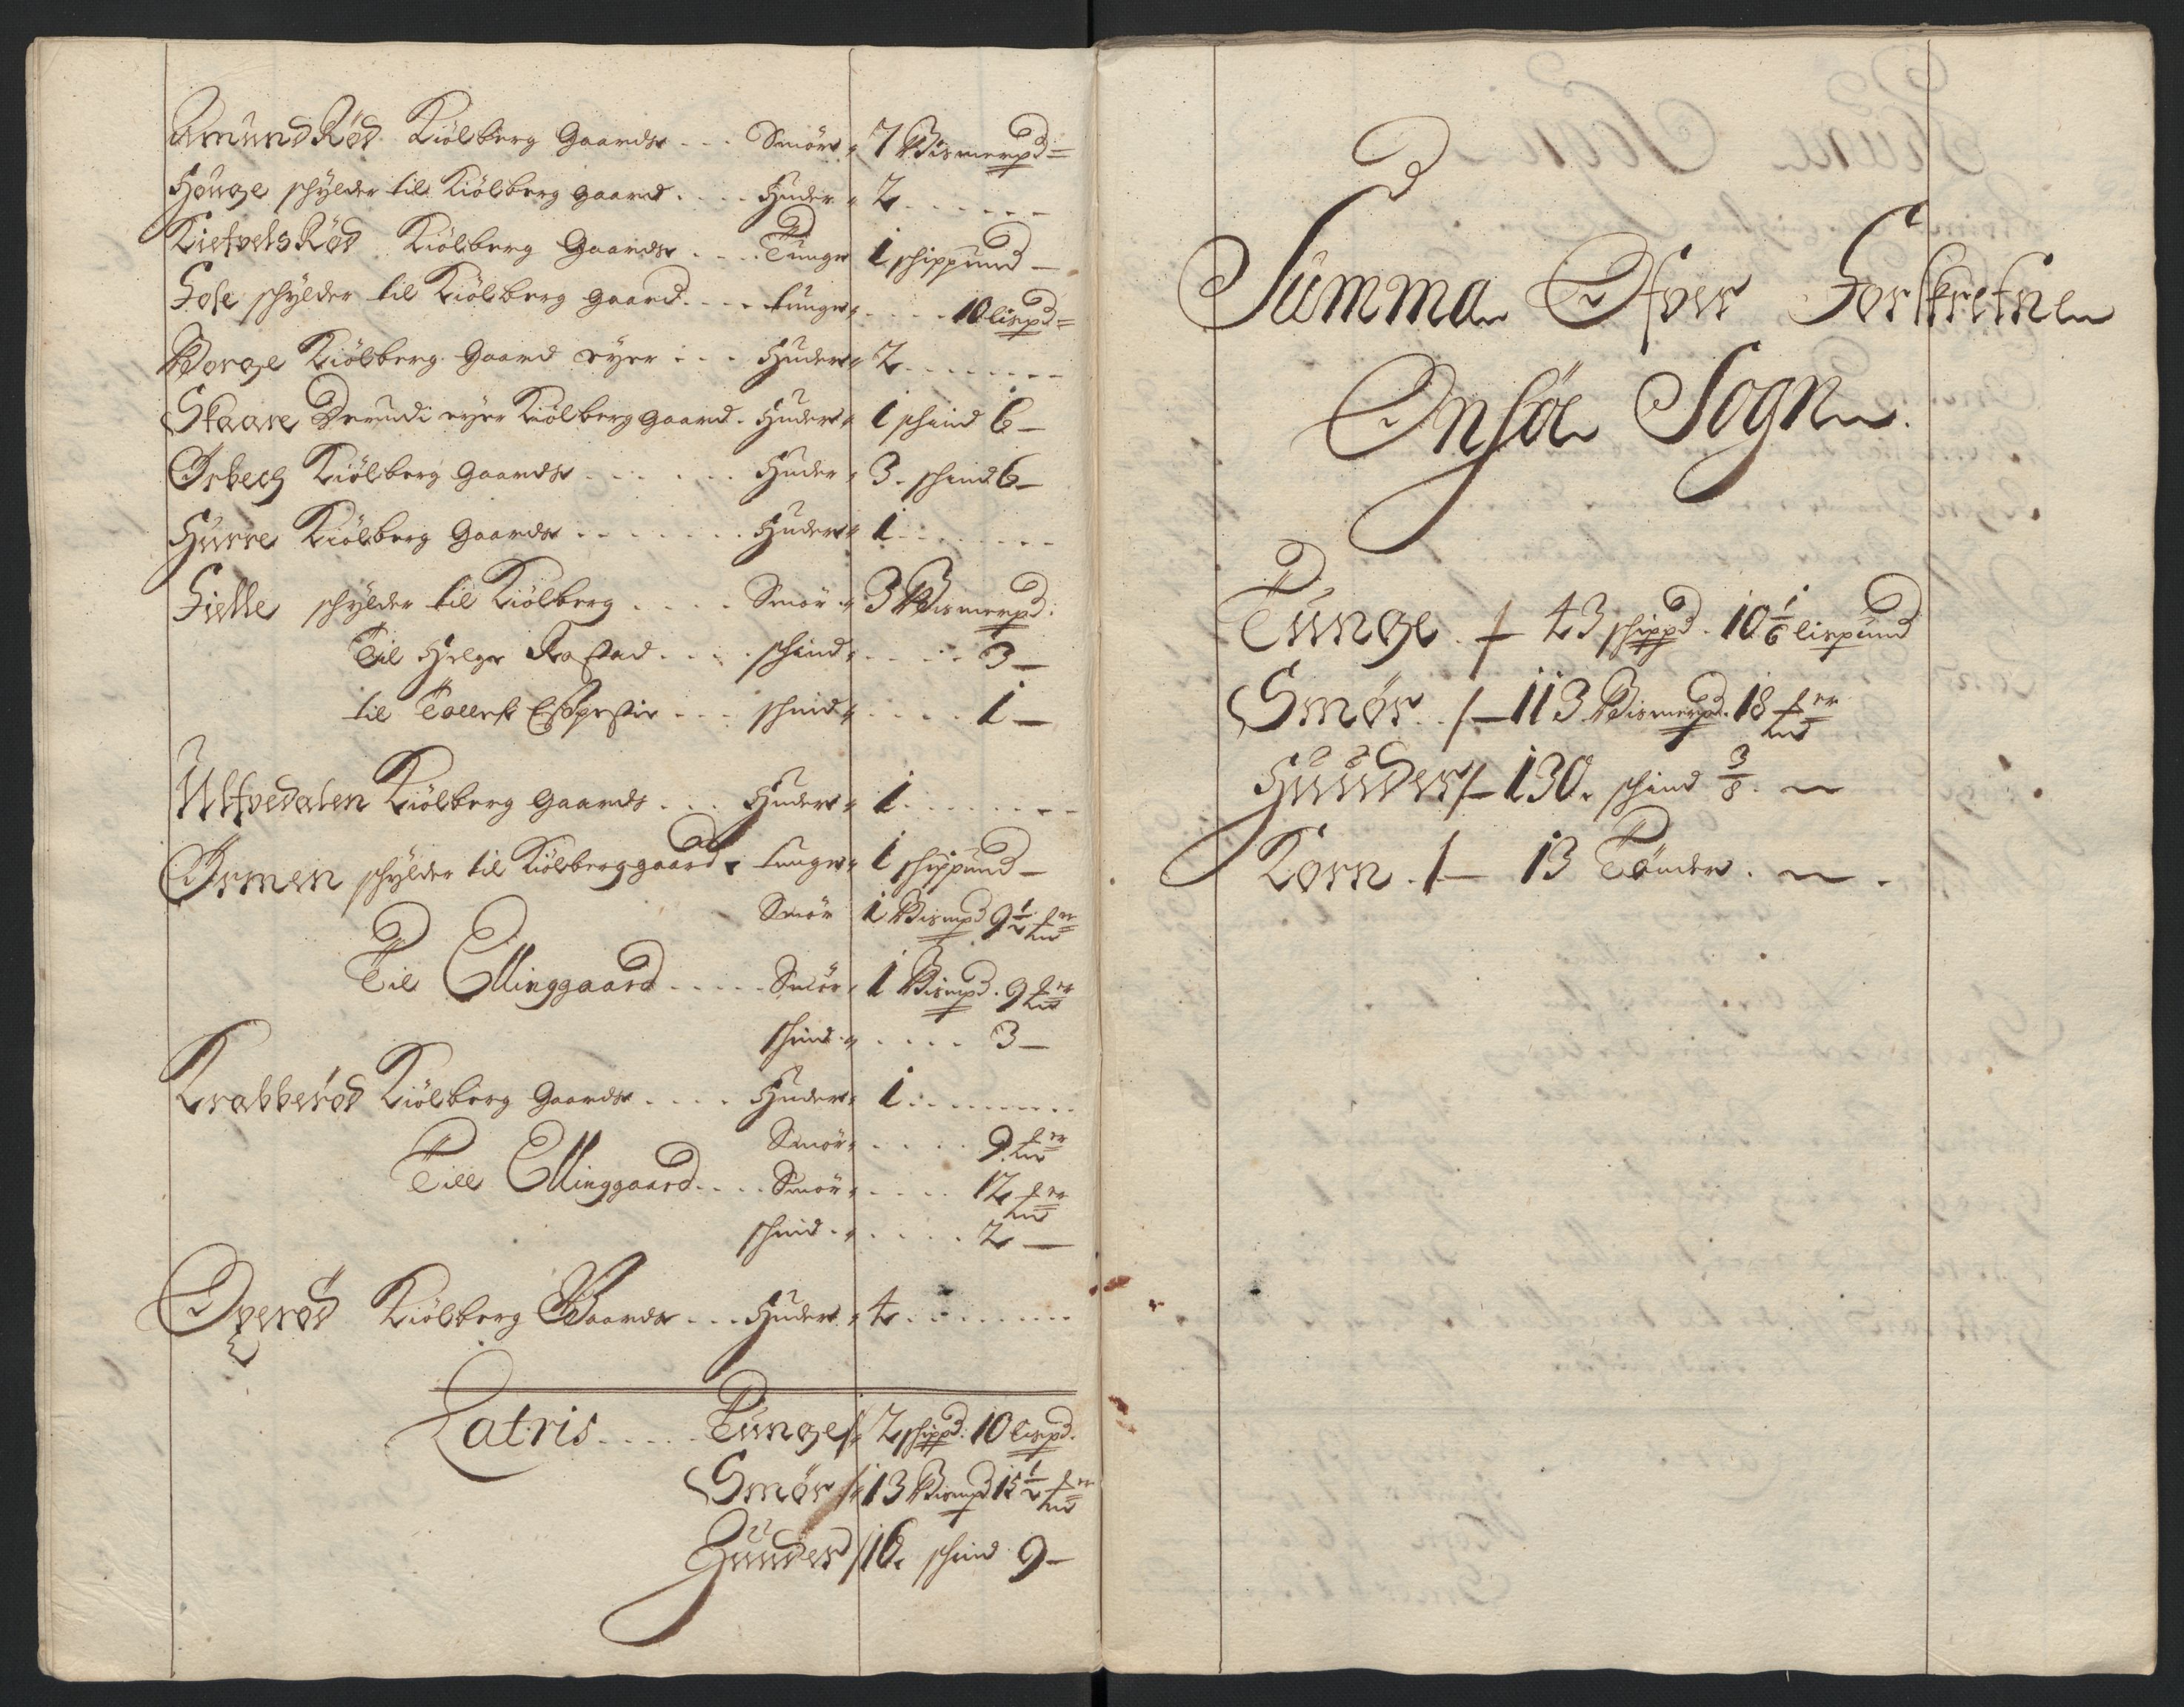 Amund Rød Kiølberg Gaards . . . Smør „ 7 Bismerpd =
Houge schylder til Kiølberg gaard . . . . Huder „ 2 . . . . . .
Kietvels Rød Kiølberg Gaards . . . . Tunge 1 schippund –
Fose schylder til Kiølberg gaard . . . . tunge „ . . . . 10 lispd =
Borge Kiølberg Gaard eyer . . . Huder „ 2 . . . . . . . .
Skaare Derudi eyer Kiølberg gaard . Huder „ 1 schind 6 –
Ørbech Kiølberg Gaards . . . . . . Huder „ 3 . schind 6 –
Hurre Kiølberg Gaards . . . . . . . Huder „ 1 . . . . . . .
Fielle schylder til Kiølberg . . . . Smør „ 3 Bismerpd :
Til Helge Rostad . . . . schind „ . . . . 3 –
til . . . schind „ . . . . 1 –
Ulfvedalen Kiølberg Gaards . . . Huder „ 1 . . . . . . .
Ørmen schylder til Kiølberggaard . tunge „ 1 schippund –
Smør 1 Bismpd 9 1/2
Til Ellinggaard . . . . . Smør „ 1 Bismpd . 9
schind . „ . . . . 3 –
Krabberød Kiølberg Gaards . . . . Huder „ 1 . . . . . . . . .
Smør „ . . . . . 9
Till Ellinggaard . . . . Smør „ . . . . 12
schind . „ . . . . . 2 –
Øverød Kiølberg Gaards . . . Huder „ 4 . . . . . . . . .
Latris . . . . . Tunge /„ 2 schippd : 10 lispd .
Smør /„ 13 Bismpd 15 1/2
Huuder / 16 . schind 9 –
Summa Ofver Forskrefne
Onsøe Sogn .
Tunge . /– 43 schippd . 10 1/6 lispund
Smør . . /– 113 Bismerpd . 18
Huuder /– 130 . schind 3/8 . –
Korn . /– 13 Tønder . – .